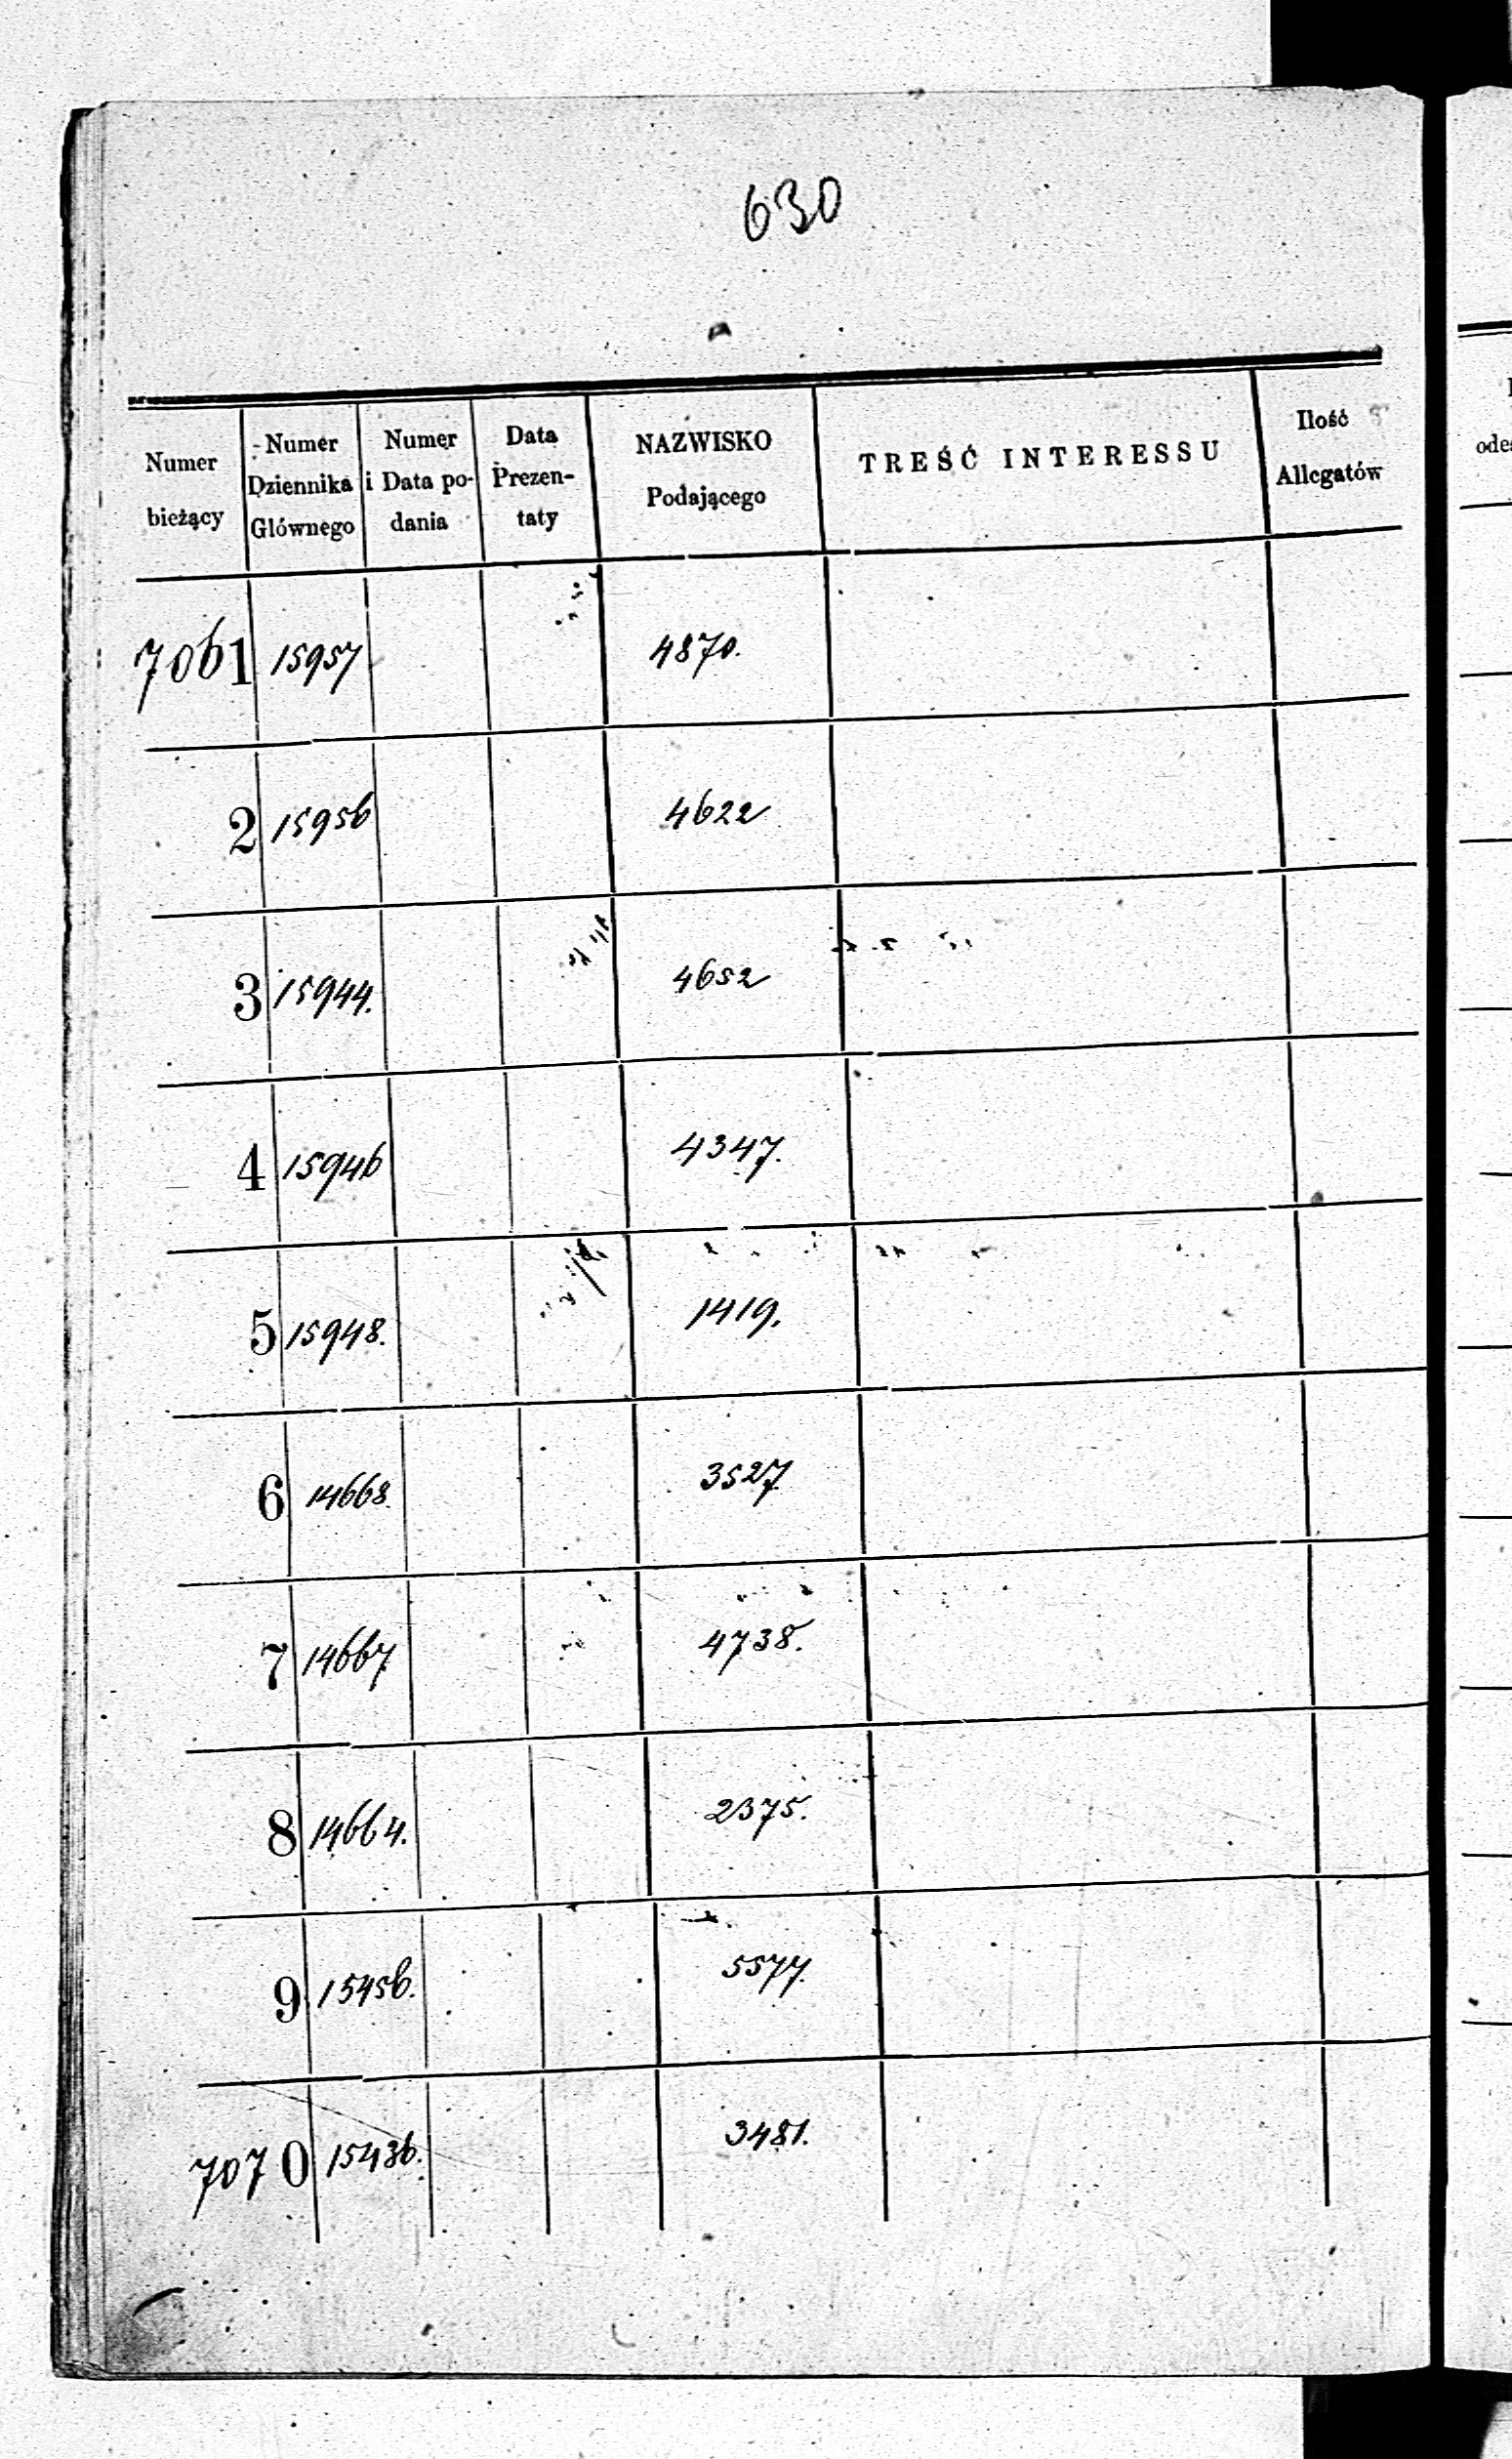 630
Numer bieżący | Numer Dziennika Głównego | Numer i Data podania | Data Prezentaty | NAZWISKO Podającego | TREŚĆ INTERESSU | Ilość Allegatów
7061 15957 4870.
2 15956 4622
3 15944. 4652
4 15946 4347.
5 15948. 1419.
6 14668 3527.
7 14667 4738.
8 14664. 2375.
9 15456. 5577.
7070 15436. 3481.